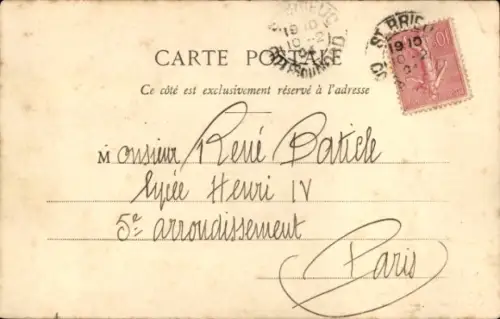 CARTE POSTALE
Ce côté est exclusivement réservé à l'adresse
Monsieur René Baticle
Lycée Henri IV
5e arrondissement
Paris
ST BRIEUC
19 10
10 -2
10